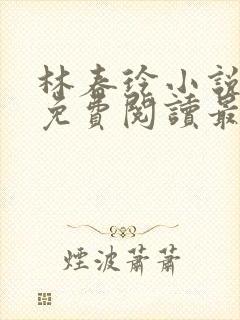 林春玲小說
免費閱讀最
煙波蕭蕭